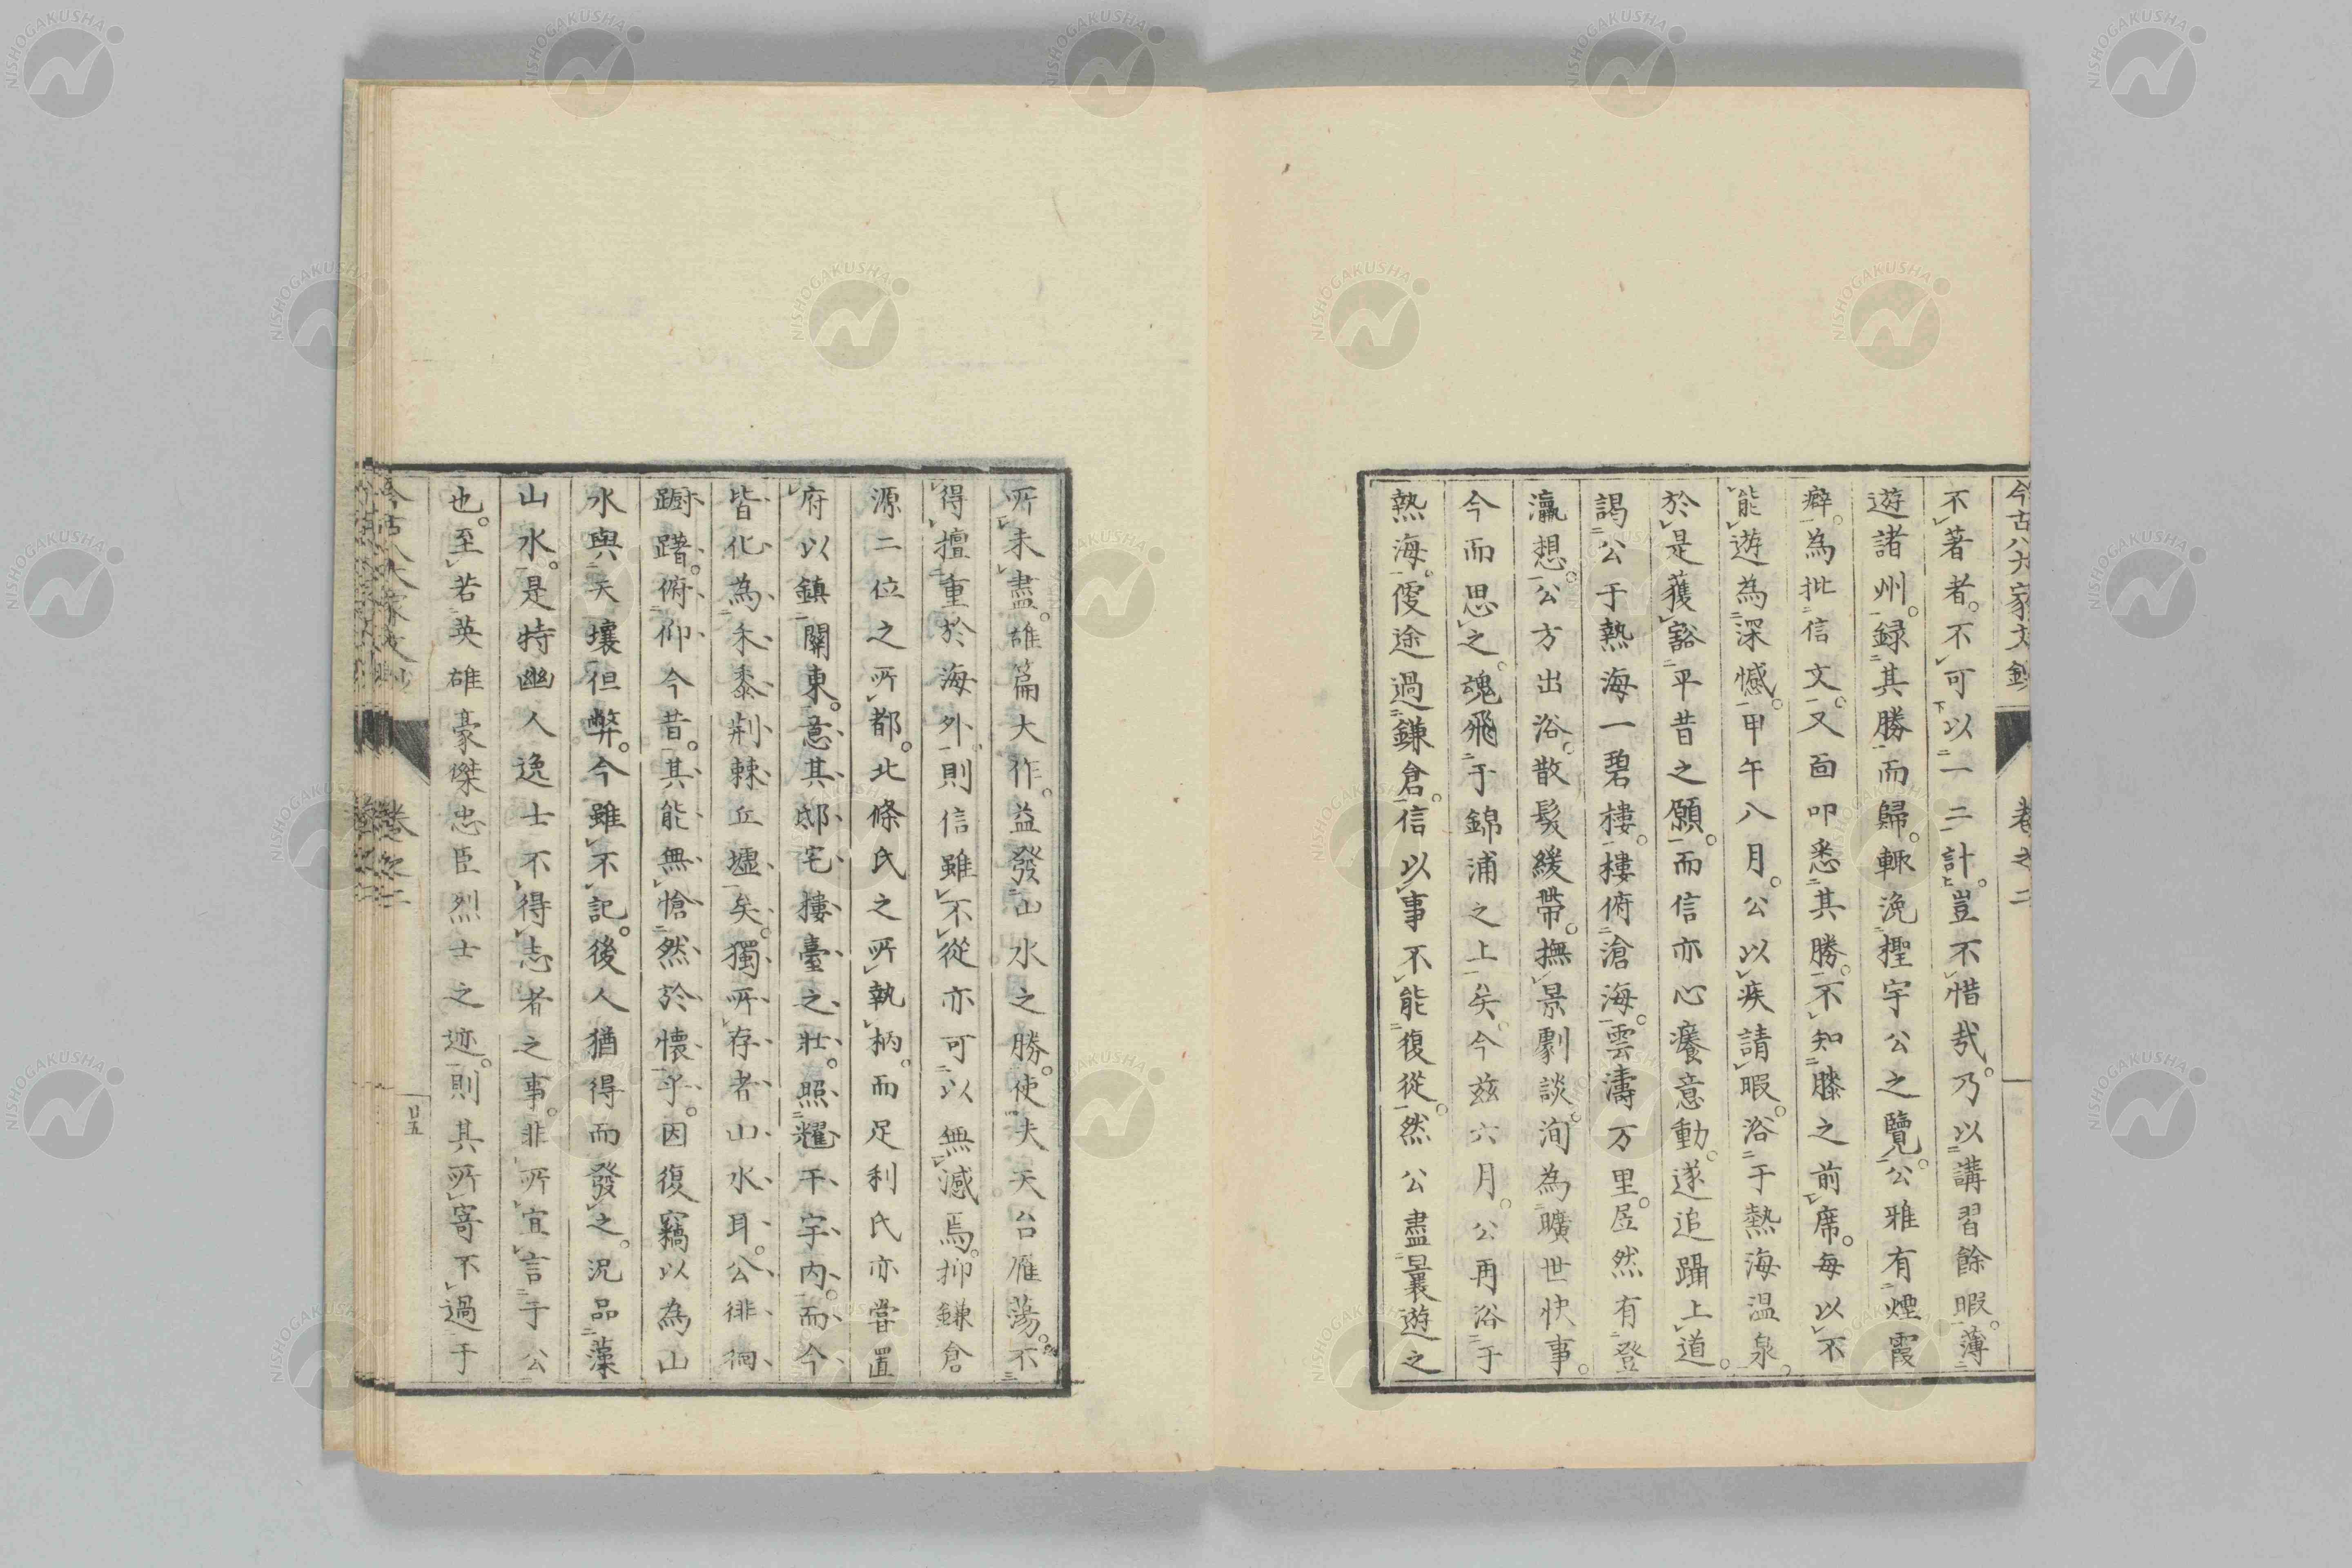 今古八大家文鈔 卷之二
不著者。不可以一二計。豈不惜哉。乃以講習餘暇。薄
遊諸州。録其勝而歸。輙浼檉宇公之覽。公雅有煙霞
癖。為批信文。又面叩悉其勝。不知膝之前席。每以不
能遊為深憾。甲午八月。公以疾請暇。浴于熱海温泉。
於是獲豁平昔之願。而信亦心癢意動。遂追躡上道。
謁公于熱海一碧樓。樓俯滄海。雲濤万里。居然有登
瀛想。公方出浴。散髮緩帶。撫景劇談。洵為曠世快事。
今而思之。魂飛于錦浦之上矣。今玆六月。公再浴于
熱海。復途過鎌倉。信以事不能復從。然公盡曩遊之
所未盡。雄篇大作。益發山水之勝。使夫天台雁蕩。不
得擅重於海外。則信雖不從亦可以無憾焉。抑鎌倉
源二位之所都。北條氏之所執柄。而足利氏亦嘗置
府以鎮關東。意其邸宅摟臺之壯。照耀于宇内。而今
皆化為禾黍荆棘丘墟矣。獨所存者山水耳。公徘徊
蹰躇。俯仰今昔。其能無愴然於懷乎。因復竊以為山
水與天壤但弊。今雖不記。後人猶得而發之。況品藻
山水。是特幽人逸士不得志者之事。非所宜言于公
也。至若英雄豪傑忠臣烈士之迹。則其所寄不過于
今古八大家文鈔 卷之二 廿五
NISHOGAKUSHA